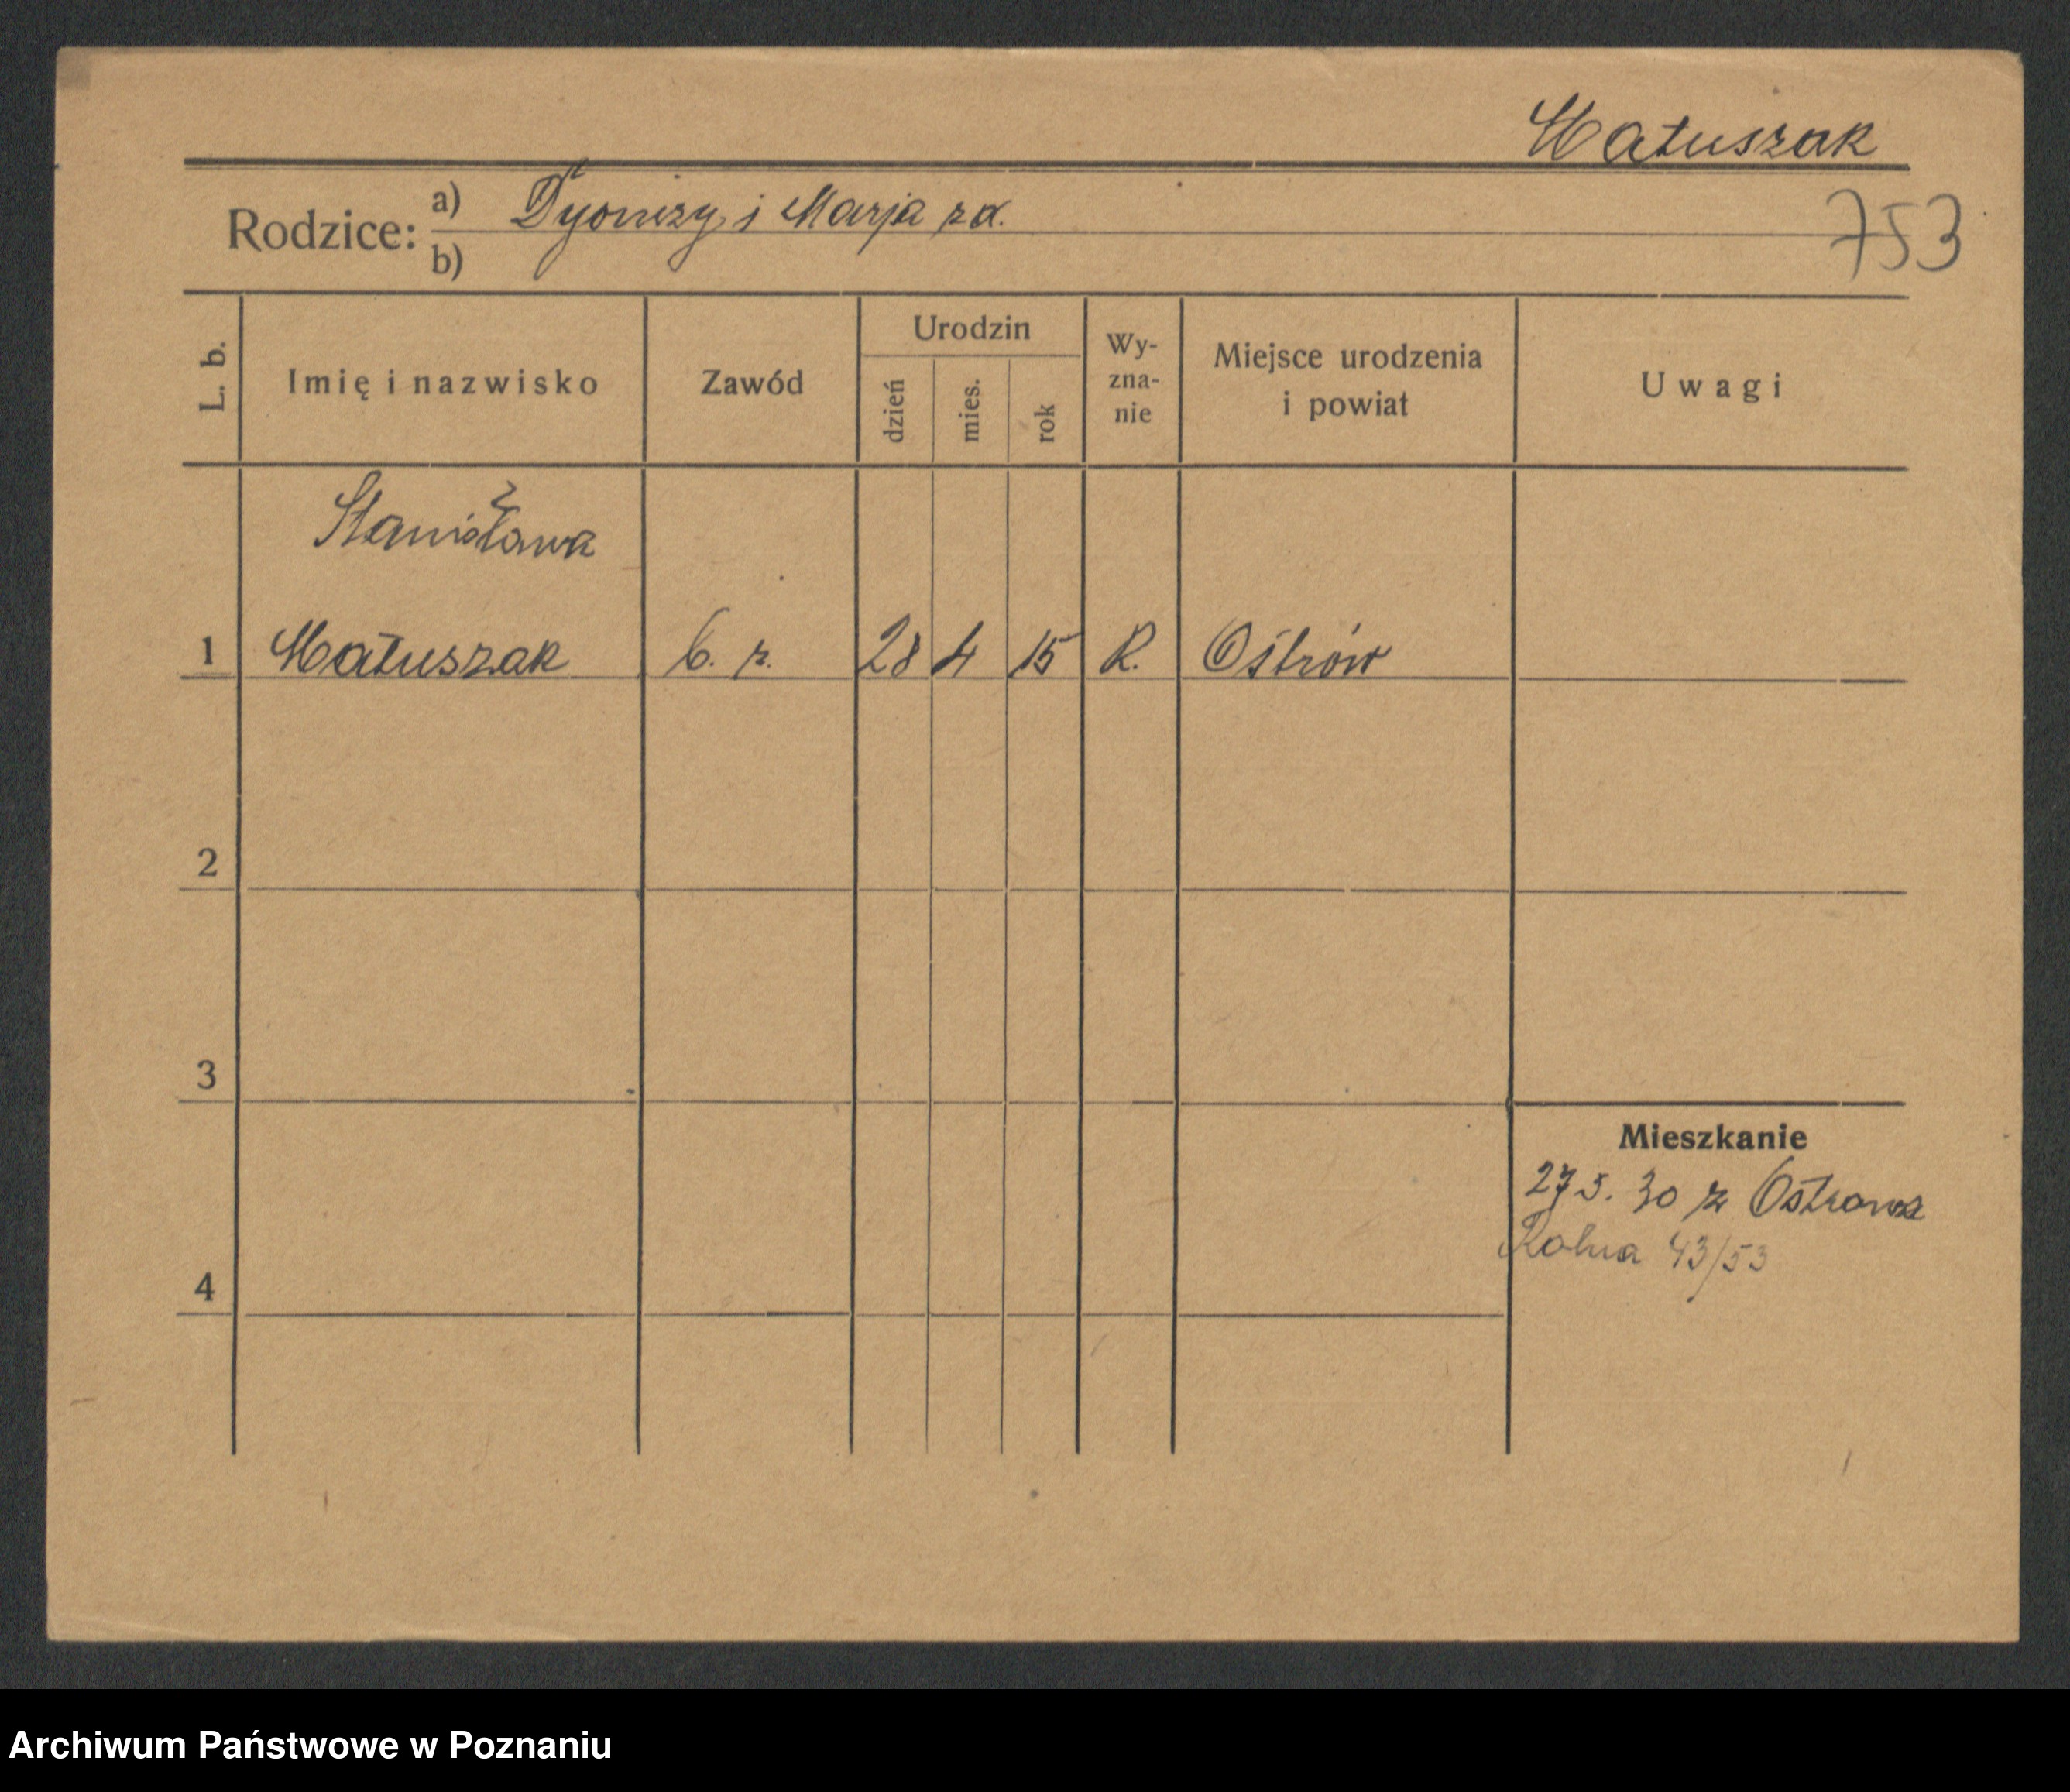 Matuszak
Rodzice: a) Dyonizy i Marja zd.
b)
753
L. b. Imię i nazwisko Zawód Urodzin dzień mies. rok Wy-zna-nie Miejsce urodzenia i powiat Uwagi
Stanisława
1 Matuszak b. z. 28 4 15 R. Ostrów
2
3
Mieszkanie
27 5. 30 z Ostrowa
Rolna 43/53
4
Archiwum Państwowe w Poznaniu